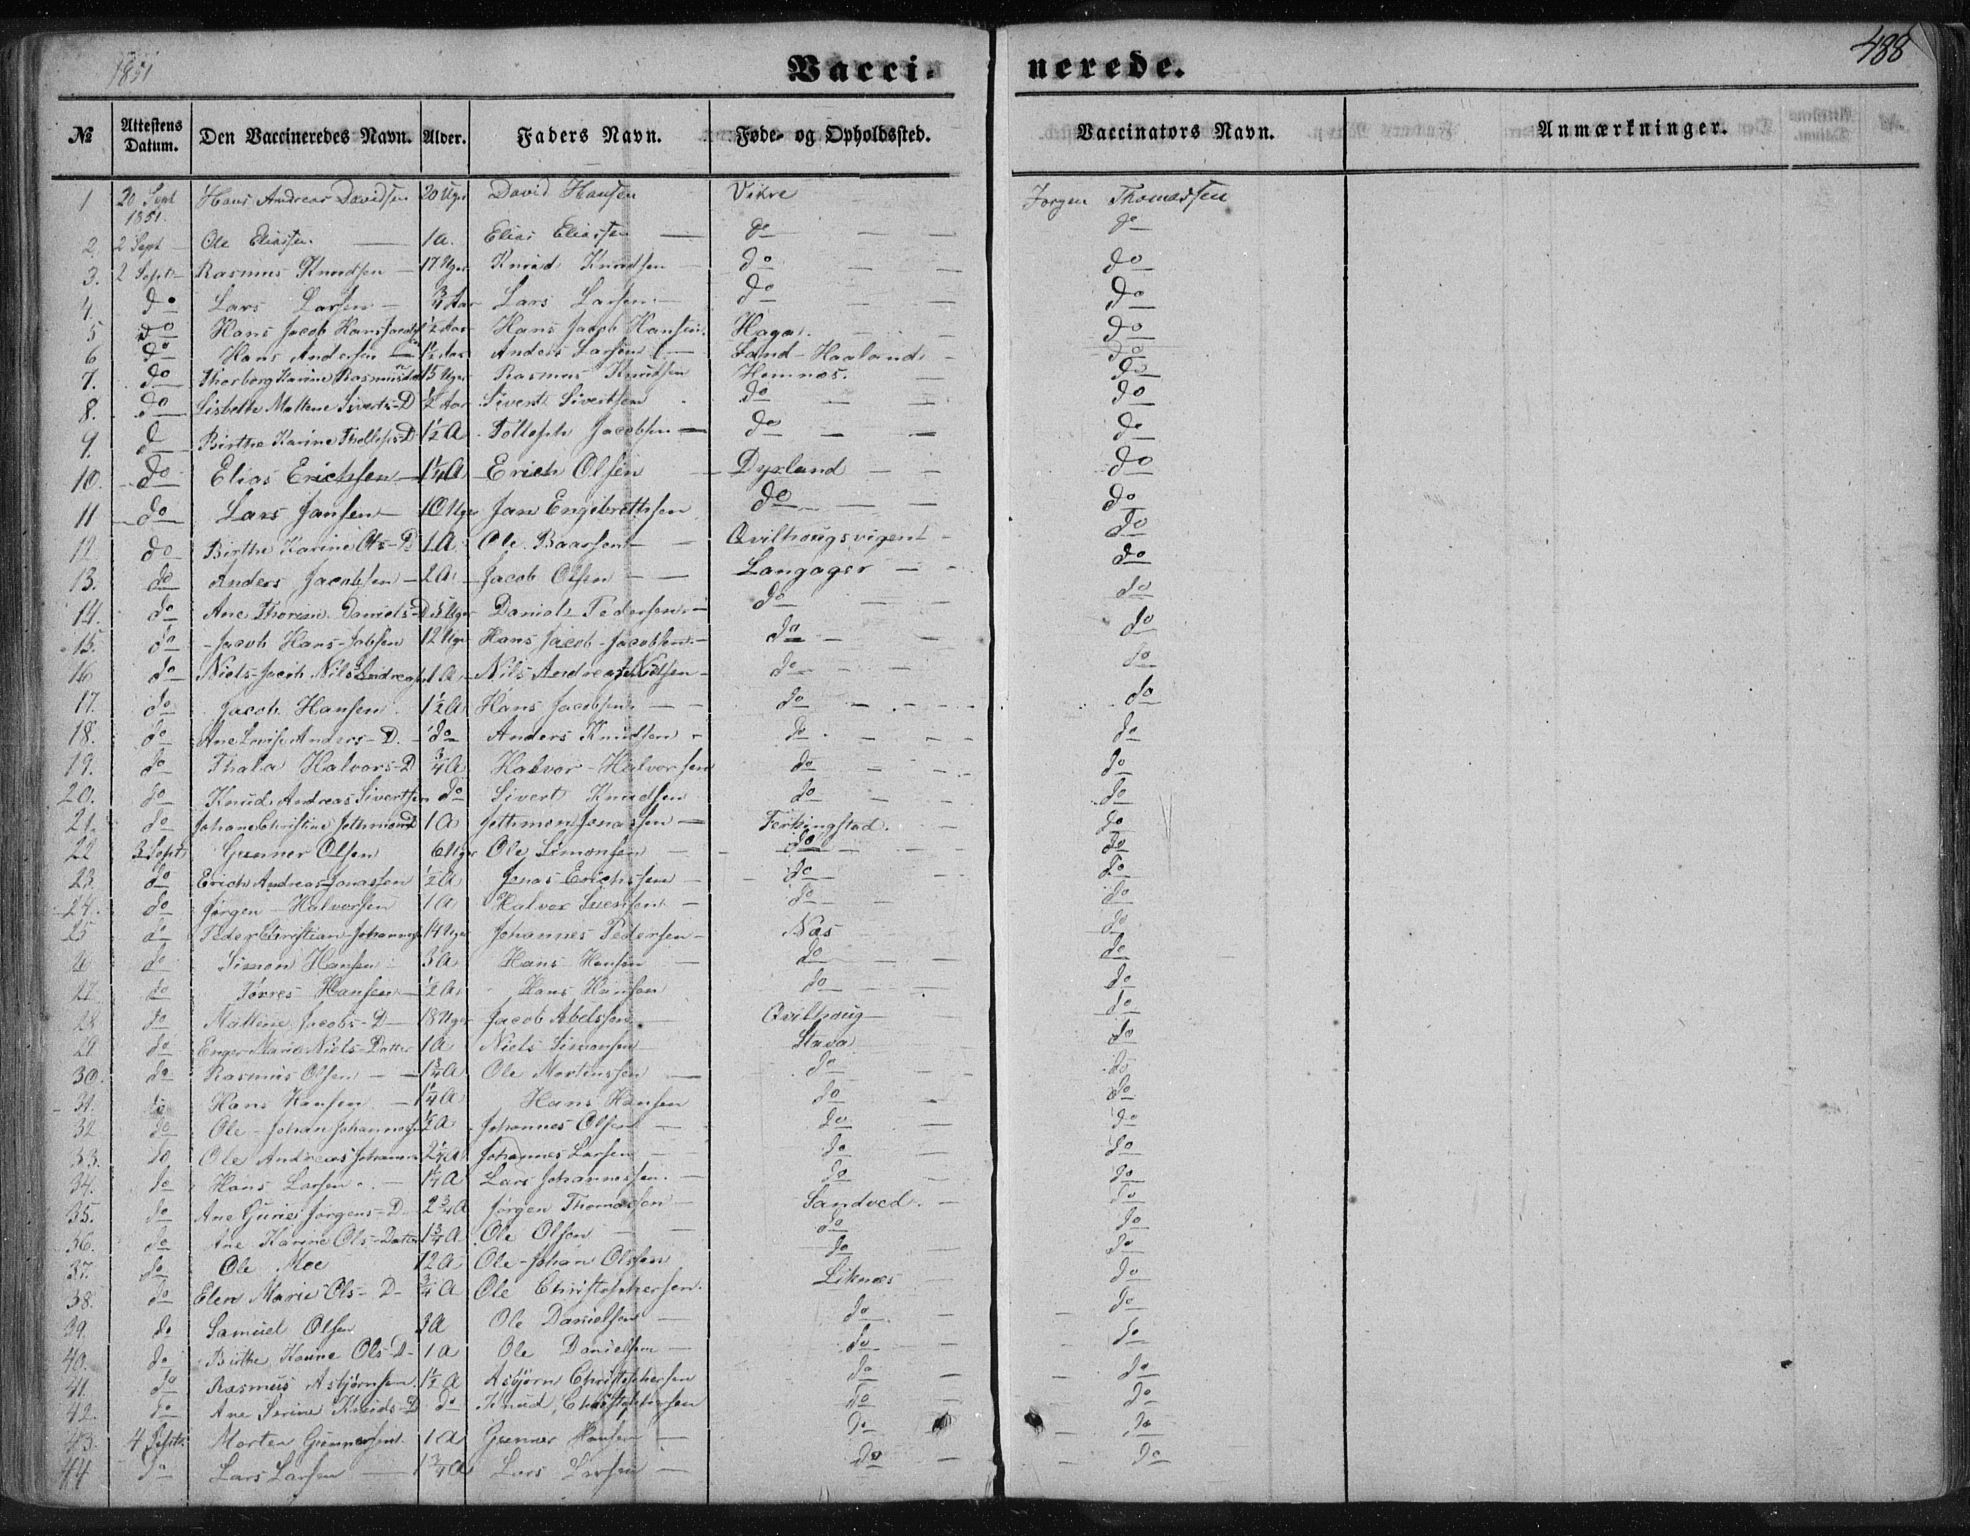 1851
Vacci-
nerede.
488
№ Attestens Datum. Den Vaccineredes Navn. Alder. Faders Navn. Føde- og Opholdssted. Vaccinators Navn. Anmærkninger.
1 20 Sept 1851. Hans Andreas Davidsen 20 Uger David Hansen Vikre Jørgen Thomassen
2. 2 Sept Ole Eliassen 1 A. Elias Eliassen do do
3. 2 Sept Rasmus Knudsen 17 Uger Knud Knudsen do do
4. do Lars Larsen 3/4 Aar Lars Larsen do do
5 do Hans Jacob Hans Jacobs 1/2 Aar Hans Jacob Hansen Haga do
6 do Hans Andersen 1 1/2 Aar Anders Larsen Sand-Haaland do
7. do Thorborg Karine Rasmusd 15 Uger Rasmus Knudsen Hemnes. do
8. do Lisbethe Maltene Siverts-D 1/2 Aar Sivert Sivertsen do do
9. do Birthe Karine Thollefs-D 1 1/2 A Tollefsh Jacobsen do do
10. do Elias Erichsen 1 1/4 A Erich Olsen Dyrland do
11 do Lars Jansen 10 Uger Jan Engebrethsen do do
12 do Birthe Karine Ols-D 1 A Ole Baarsen Qvilhougsvigent do
13. do Anders Jacobsen 2 A. Jacob Olsen Langager do
14. do Ane Thorine Daniels-D 5 Uger Daniel Pedersen do do
15. do Jacob Hans-Jabsen 12 Uger Hans Jacob Jacobsen do do
16 do Niels-Jacob Nils Andreas 1 A Nils Andreas Nilsen do do
17. do Jacob Hansen 1 1/2 A Hans Jacobsen do do
18. do Ane Lovise Anders-D. do Anders Knudsen do do
19. do Thala Halvors-D 3/4 A Halvor Halvorsen do do
20. do Knud Andreas Sivertsen do Sivert Knudsen do do
21. do Johane Christine Jethmund 1 A Jethmon Jonassen Ferkingstad. do
22 3 Sept Gunner Olsen 6 Uger Ole Simonsen do do
23. do Erich Andreas Jonassen 1/2 A Jonas Erichsen do do
24. do Jørgen Halvorsen 1 A Halvor Svensen do do
25 do Peder Christian Johannes 14 Uger Johannes Pedersen Nas do
26 do Simon Hansen 3 A Hans Hansen do do
27. do Tørres Hansen 1/2 A. Hans Hansen do do
28 do Maltene Jacobs-D 18 Uger Jacob Abelsen Qvilhoug do
29 do Enger Marie Niels-Datter 1 A Niels Simonsen Stava do
30. do Rasmus Olsen 1 3/4 A Ole Mortensen do do
31. do Hans Hansen 1 1/4 A Hans Hansen do do
32 do Ole Johan Johannes 1/2 A Johannes Olsen do do
33. do Ole Andreas Johannes 2 1/4 A Johannes Larsen do do
34. do Hans Larsen 1 1/4 A Lars Johannessen. do do
35. do Ane Gurie Jørgens-D 2 3/4 A Jørgen Thomassen Sandved. do
36. do Ane Karine Ols-Datter 1 3/4 A Ole Olsen do do
37. do Ole Moe 12 A Ole-Johan Olsen do do
38. do Elen Marie Ols-D- 3/4 A Ole Christophersen. Liknæs do
39. do Samuel Olsen 3 A Ole Danielsen do do
40. do Birthe Karine Ols-D- 1 A Ole Danielsen do do
41. do Rasmus Asbjørnsen. 1 1/2 A Asbjørn Christophersen do do
42. do Ane Serine Knuds-D do Knud Christophersen do do
43. 4 Septr Morten Gunnersen 1 A Gunner Hansen do do
44 do Lars Larsen 1 3/4 A Lars Larsen do do